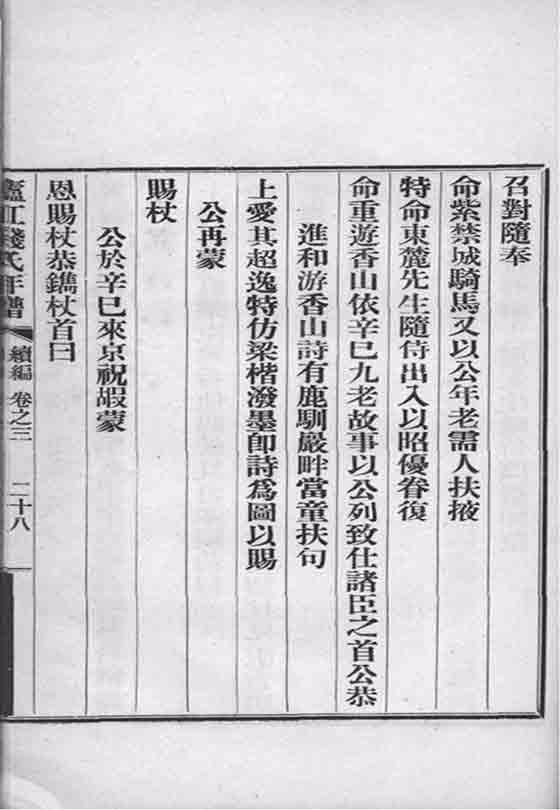 召對隨奉
命紫禁城騎馬又以公年老需人扶掖
特命東麓先生隨侍出入以昭優眷復
命重遊香山依辛巳九老故事以公列致仕諸臣之首公恭
進和游香山詩有鹿馴巖畔當童扶句
上愛其超逸特仿梁楷潑墨卽詩爲圖以賜
公再蒙
賜杖
公於辛巳來京祝嘏蒙
恩賜杖恭鐫杖首曰
廬江錢氏年譜 續編 卷之三 二十八